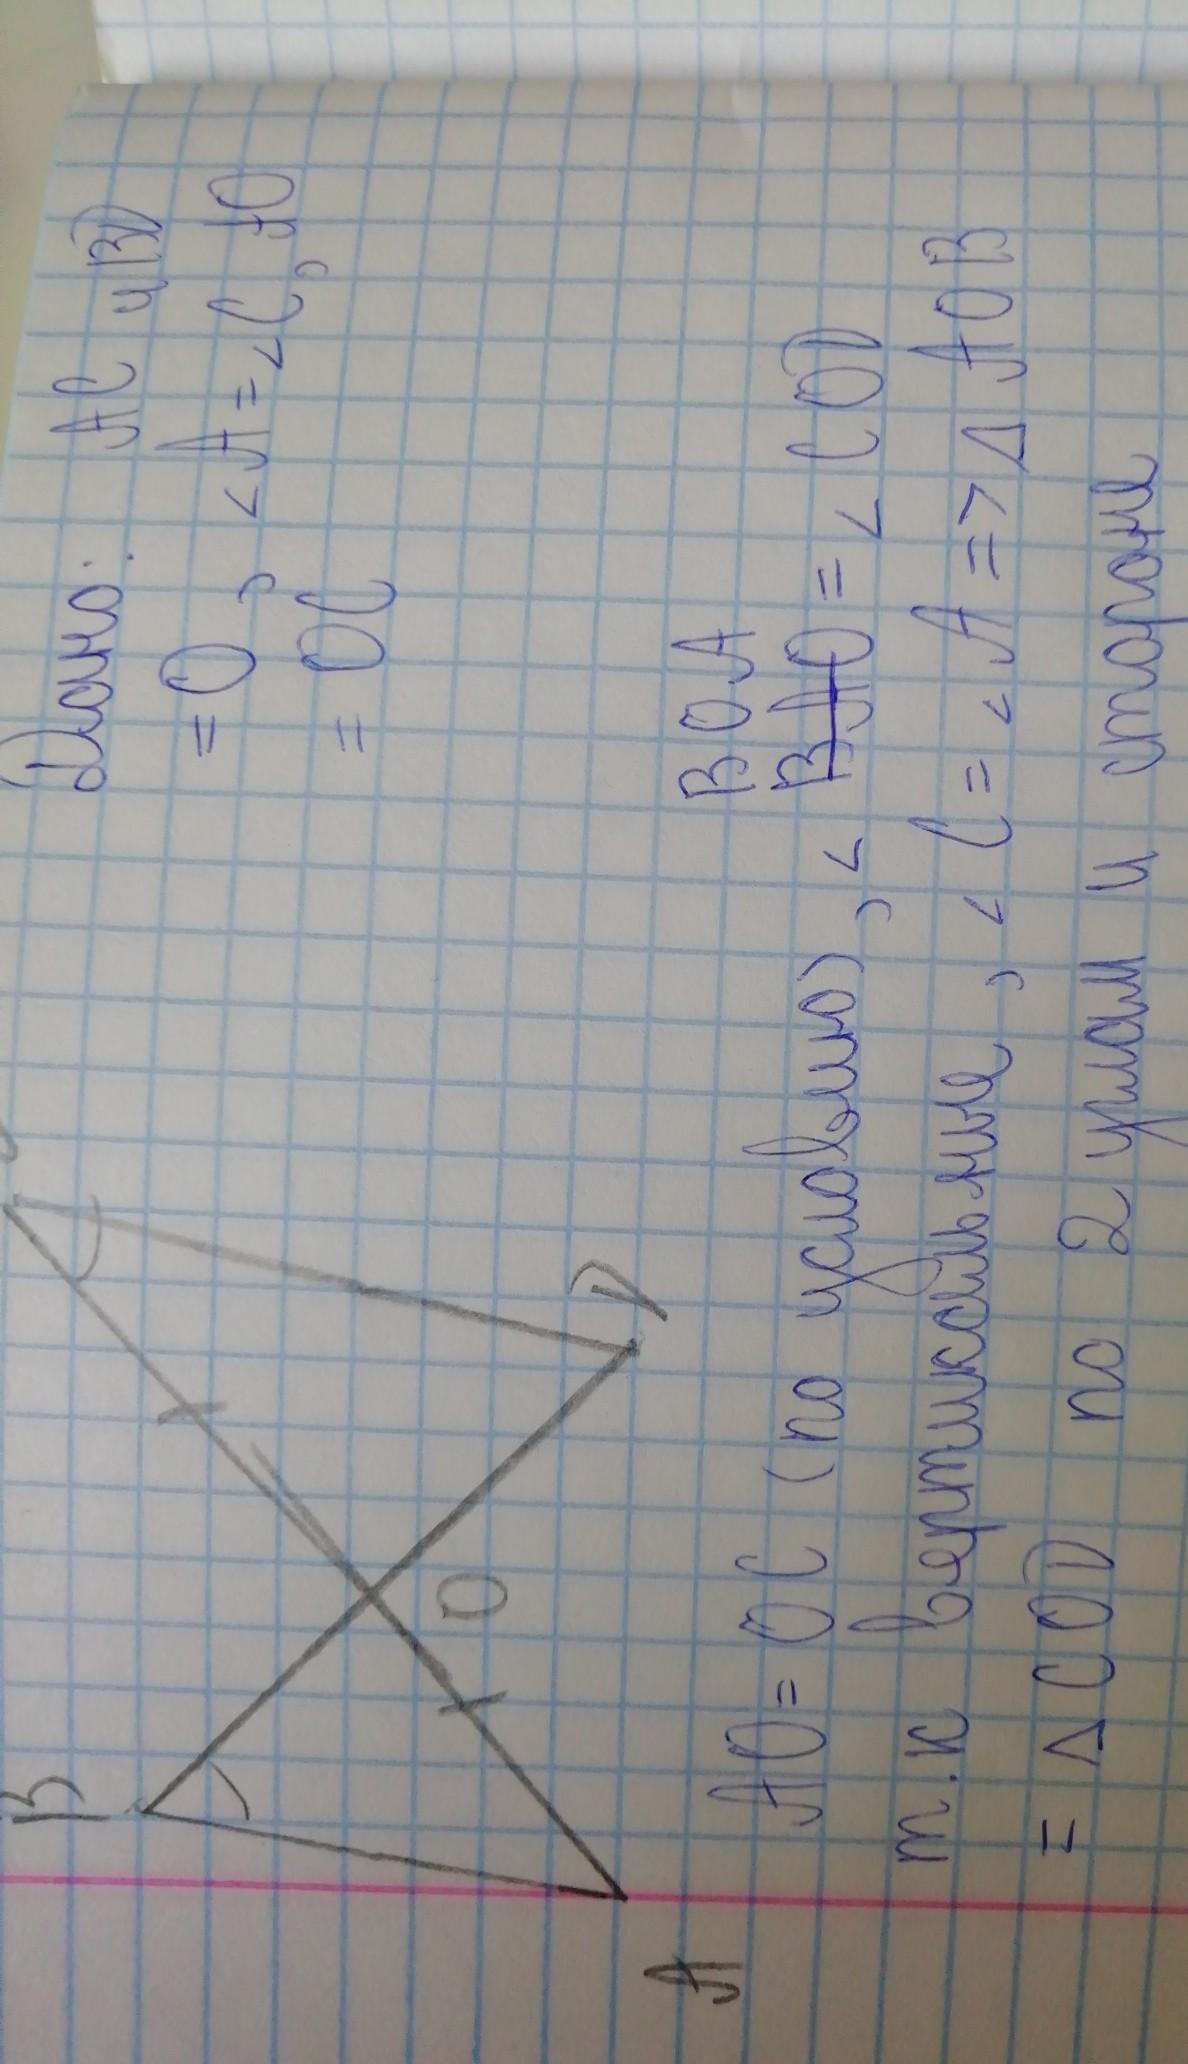 Дано: АС и BD
= O, < A = < C, AO
= OC
B
D
O
A
BOA
AO = OC (по условию), < BAO = < COD
т.к вертикальные, < C = < A => Δ AOB
= Δ COD по 2 углам и стороне